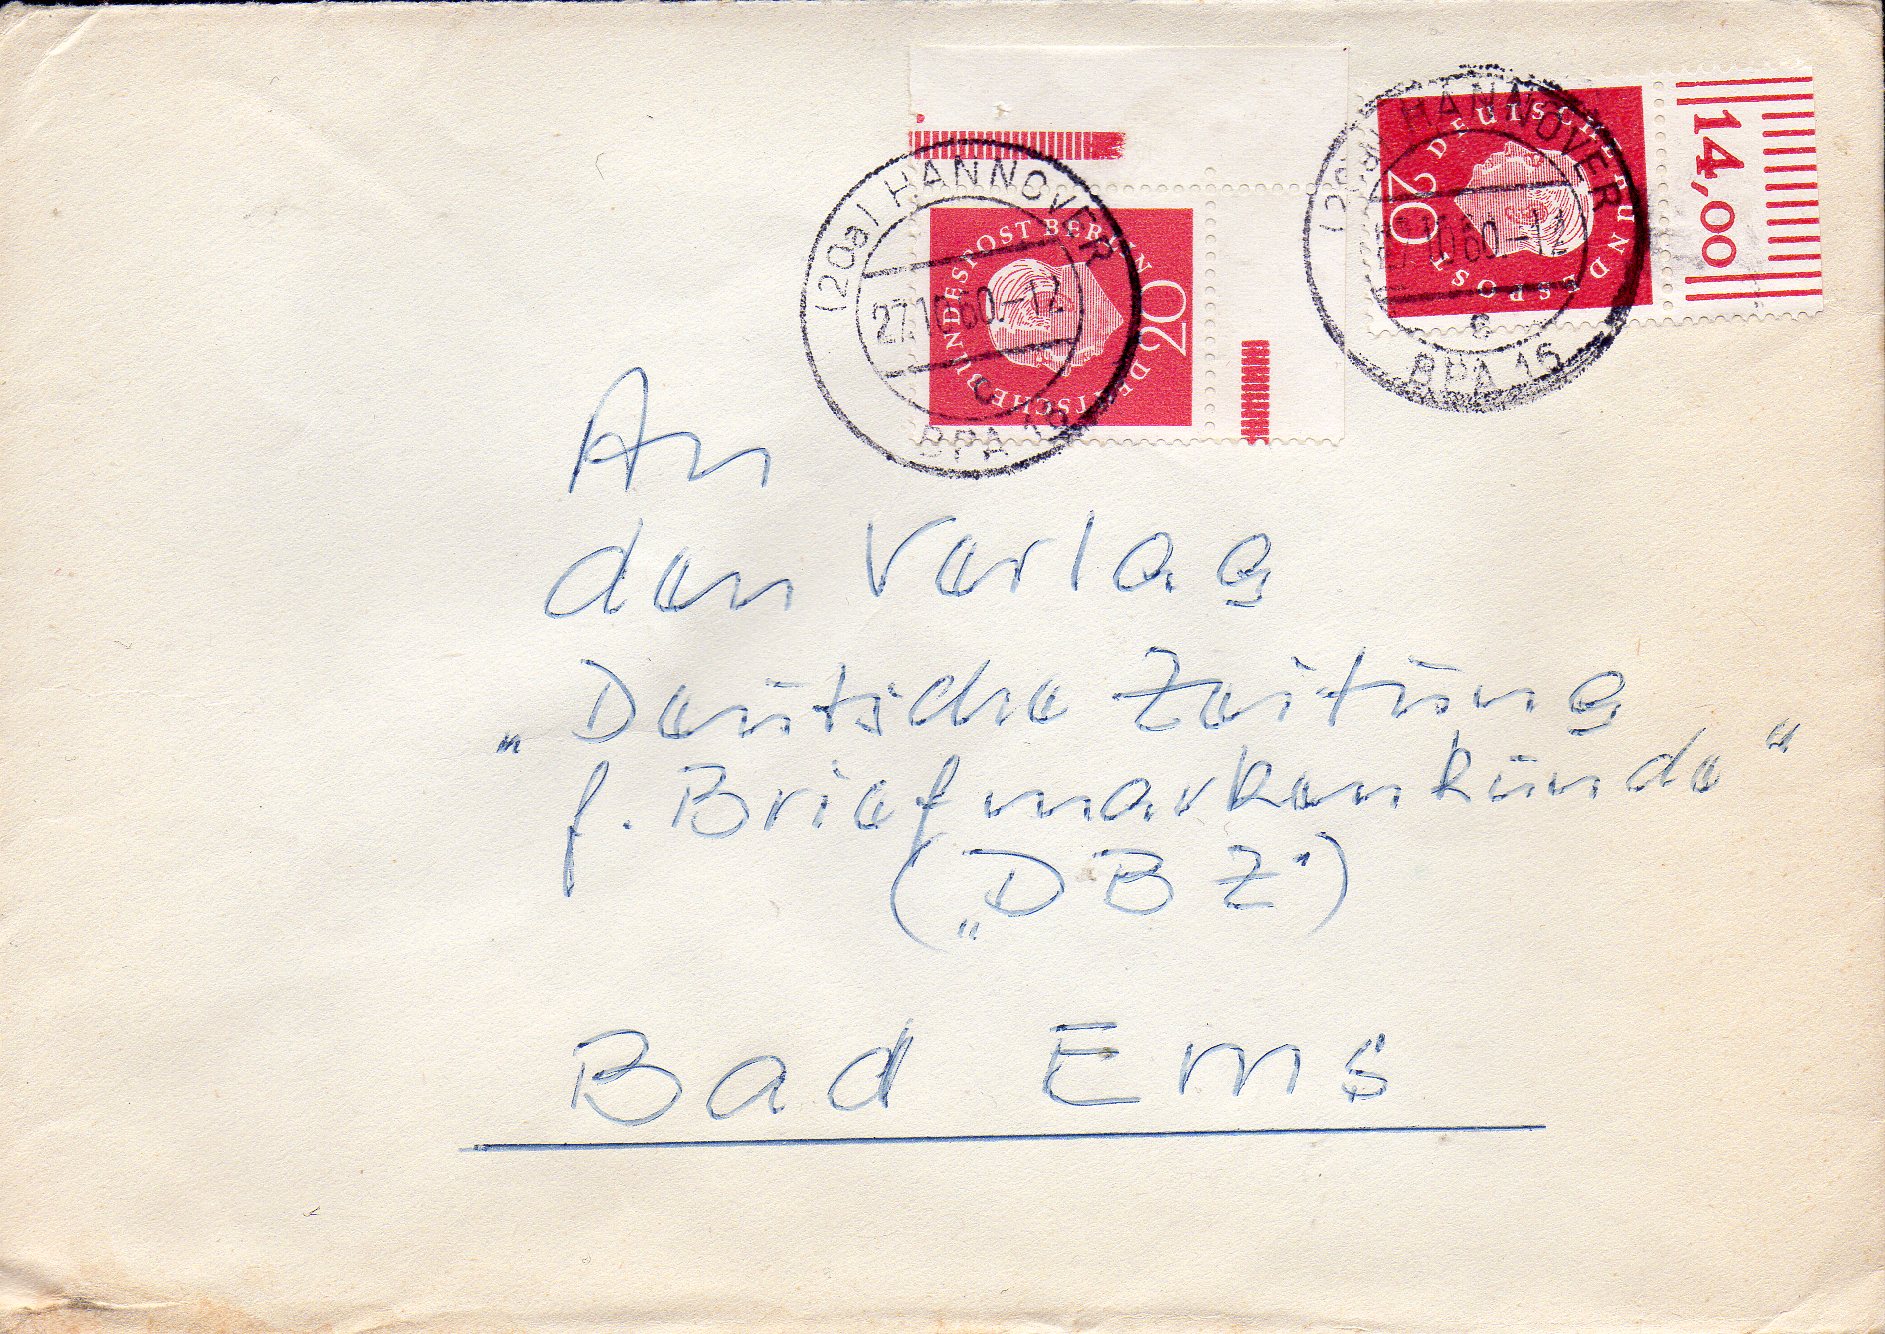 DEUTSCHE BUNDESPOST BERLIN
20
(20a) HANNOVER
27.10.60.-12
c
BPA
DEUTSCHE BUNDESPOST
20
14,00
(20a) HANNOVER
27.10.60.-12
BPA 15
An
den Verlag
„Deutsche Zeitung
f. Briefmarkenkunde“
(„DBZ“)
Bad Ems